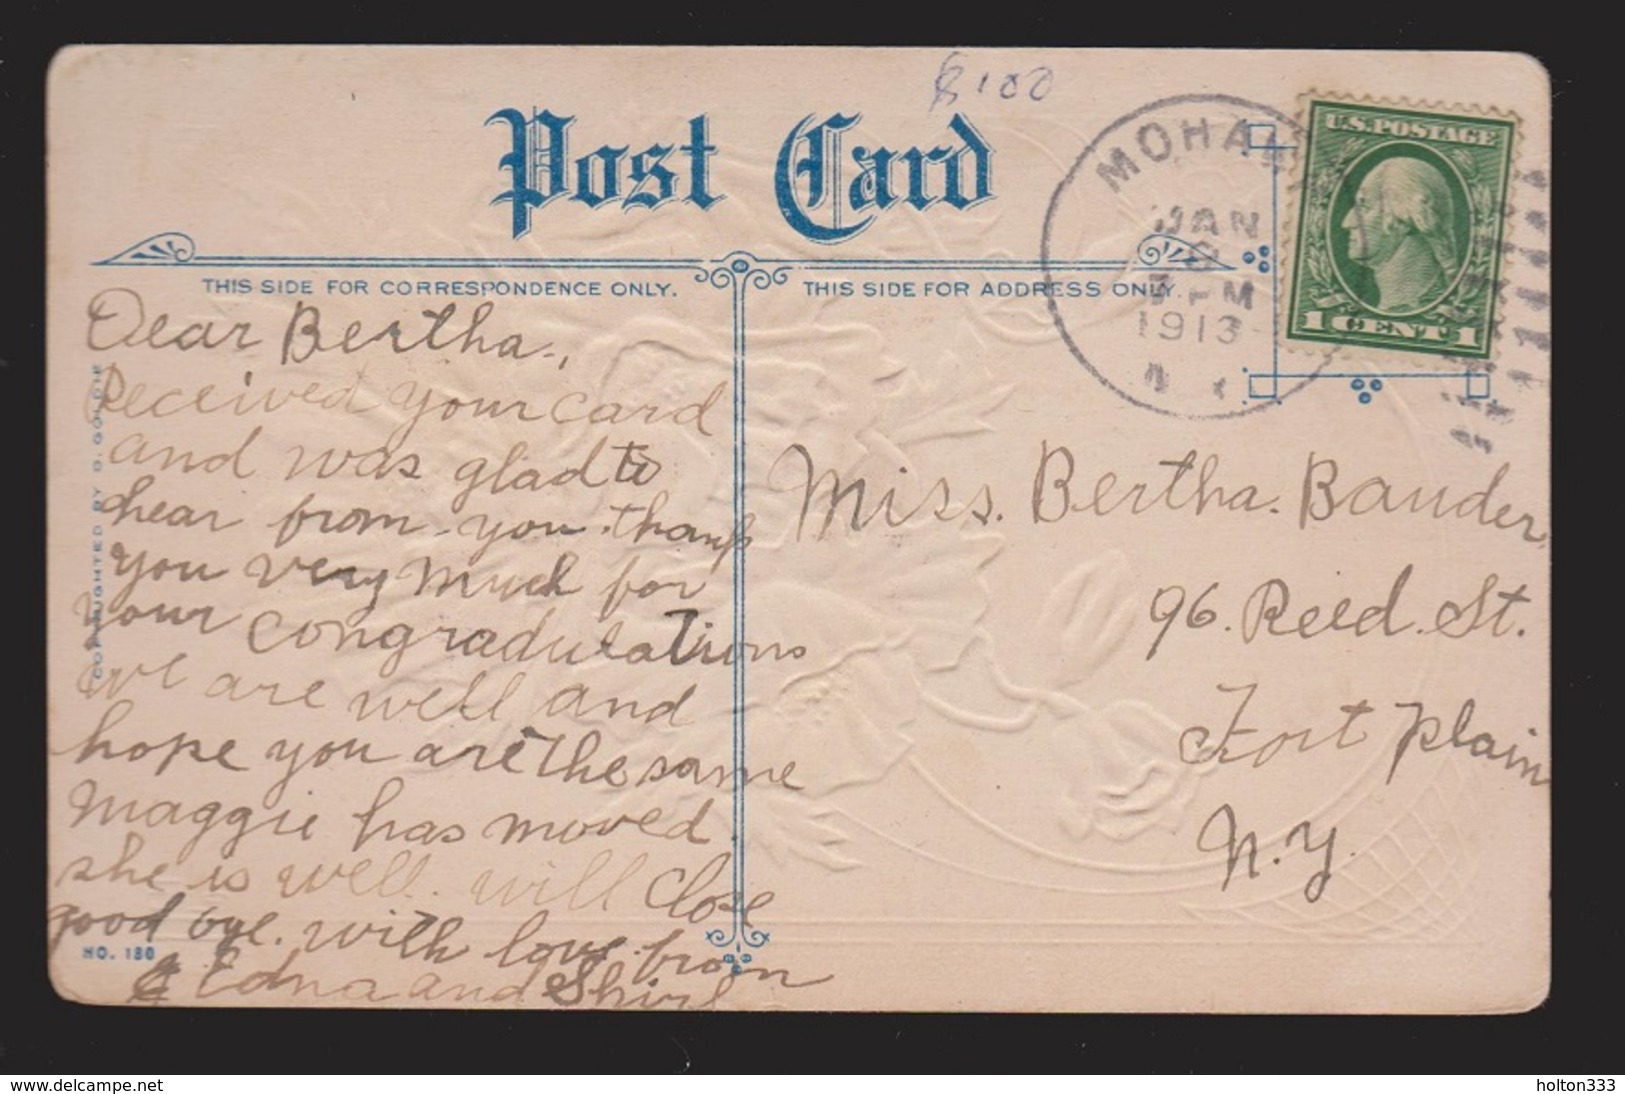 $1.00
Post Card
MOHAWK
JAN
8
PM
1913
N Y
U.S. POSTAGE
1 CENT 1
THIS SIDE FOR CORRESPONDENCE ONLY.
THIS SIDE FOR ADDRESS ONLY.
Dear Bertha.,
Received your card
and was glad to
hear from you. thank
you very much for
your congradulations
we are well and
hope you are the same
Maggie has moved.
she is well. will close
good bye. with love from
Edna and Shirl
Miss. Bertha. Bauder,
96. Reed. St.
Fort Plain
N.Y.
COPYRIGHTED BY D. GOLDIE
NO. 180
www.delcampe.net
holton333